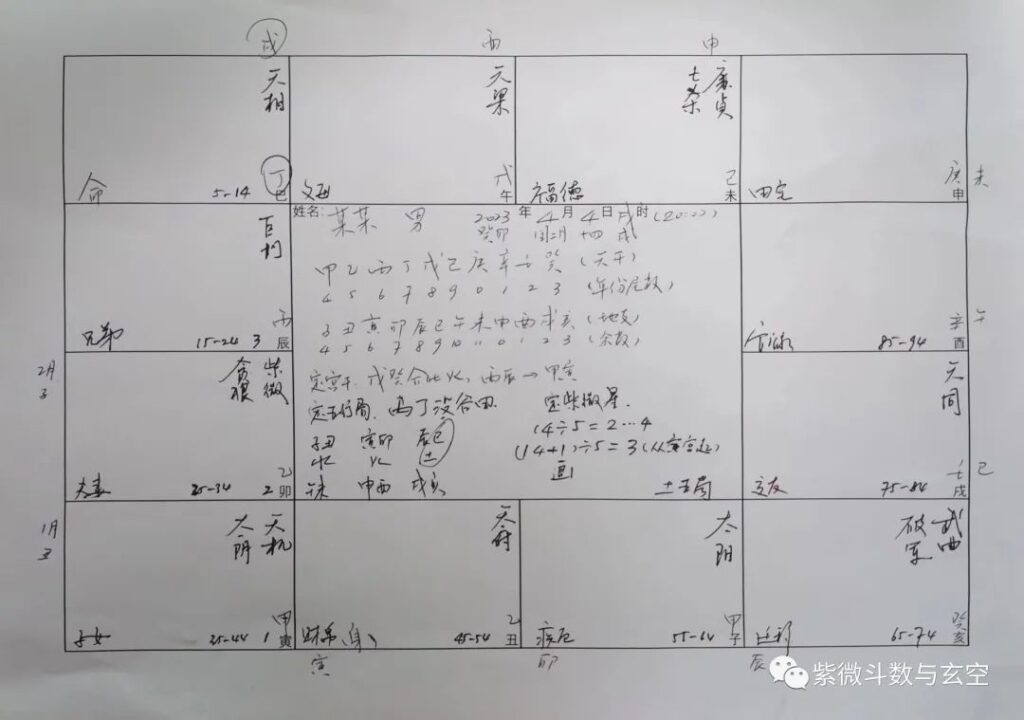 戌 酉 申
天相
命 5-14 丁巳
天梁
戊午
廉贞
七杀
福德 己未
田宅 庚申 未
姓名: 某某 男 2023年4月4日戌时(20:22)
癸卯 闰二月 十四 戌
甲乙丙丁戊己庚辛壬癸(天干)
4 5 6 7 8 9 0 1 2 3 (年份尾数)
子丑寅卯辰巳午未申酉戌亥(地支)
4 5 6 7 8 9 10 11 0 1 2 3 (余数)
定宫干. 戊癸合化火, 丙辰→甲寅
定五行局. 定紫微星.
14÷5=2…4
子丑 寅卯 辰巳
水 火 土
(14+1)÷5=3(从寅宫起)
午未 申酉 戌亥
土五局
巨门
兄弟 15-24 3 丙辰
官禄 85-94 辛酉 午
2月
丑
紫微
贪狼
夫妻 25-34 2 乙卯
天同
交友 75-84 壬戌 巳
1月
丑
天机
太阴
子女 35-44 1 甲寅
天府
财帛(身) 45-54 乙丑
寅
太阳
疾厄 55-64 甲子
卯
武曲
破军
迁移 65-74 癸亥
辰
紫微斗数与玄空